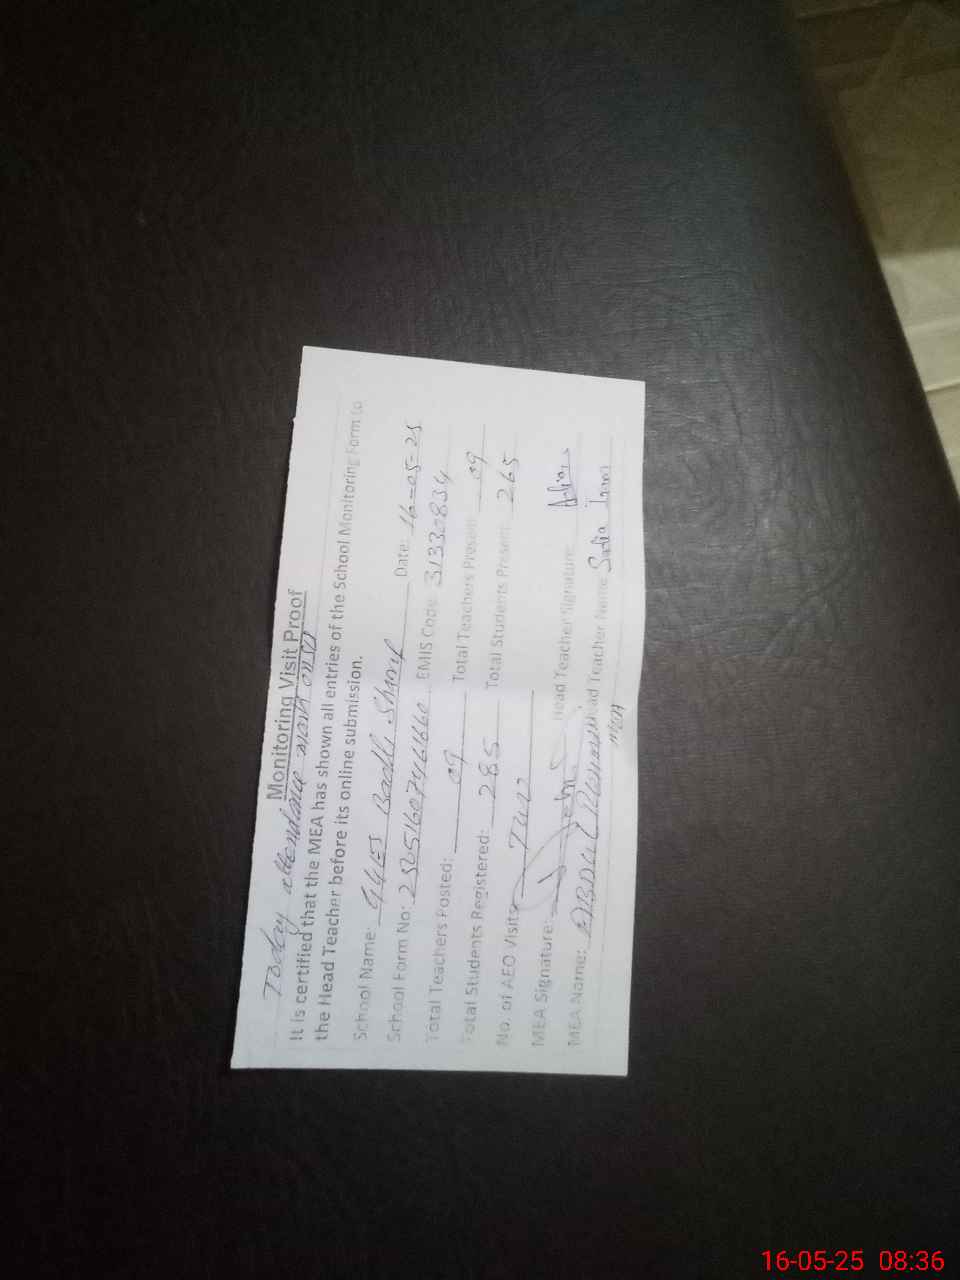 Monitoring Visit Proof
Today attendance mark
It is certified that the MEA has shown all entries of the School Monitoring Form to
the Head Teacher before its online submission.
School Name: GGES Badli Sharif Date: 16-05-25
School Form No: EMIS Code 31330834
Total Teachers Posted: 09 Total Teachers Present 09
Total Students Registered: 285 Total Students Present 265
No. of AEO Visits Two
MEA Signature: Head Teacher Signature
MEA Name: Head Teacher Name Sadia
MEA
16-05-25 08:36